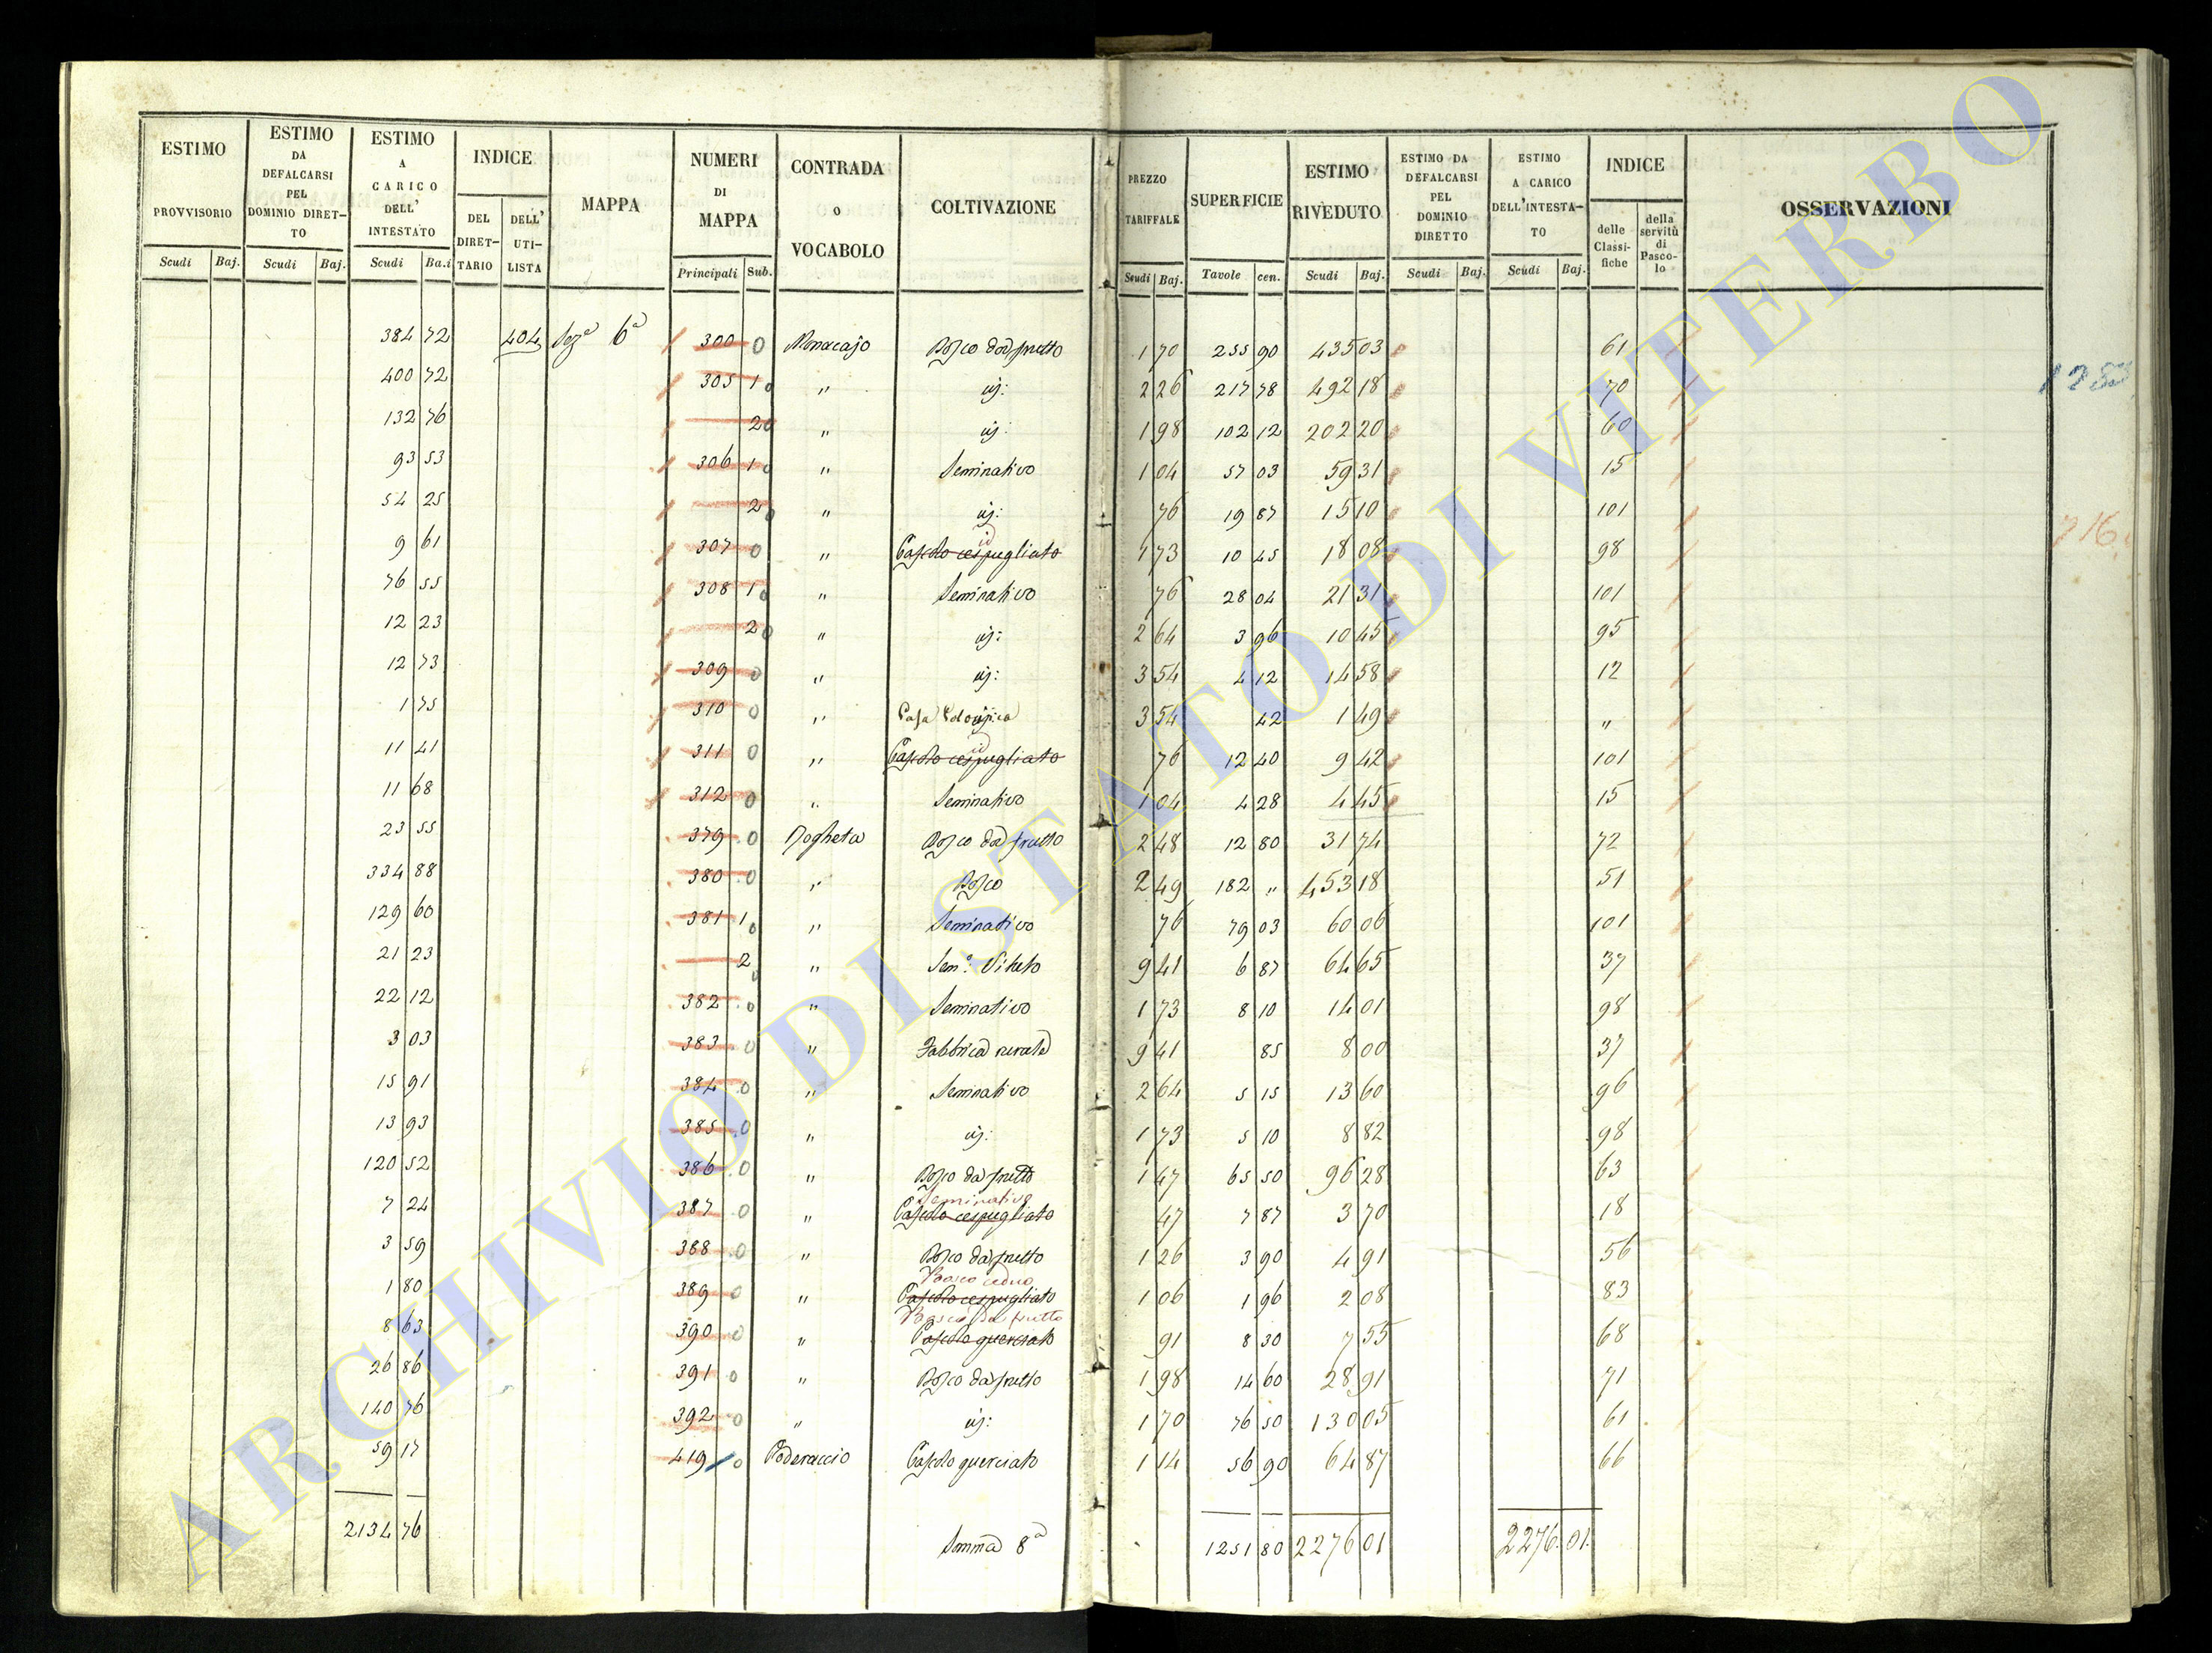 ESTIMO PROVVISORIO Scudi Baj.
ESTIMO DA DEFALCARSI PEL DOMINIO DIRET-TO Scudi Baj.
ESTIMO A CARICO DELL' INTESTATO Scudi Ba.i
INDICE DEL DIRET-TARIO DELL' UTI-LISTA
MAPPA
NUMERI DI MAPPA Principali Sub.
CONTRADA O VOCABOLO
COLTIVAZIONE
PREZZO TARIFFALE Scudi Baj.
SUPERFICIE Tavole cen.
ESTIMO RIVEDUTO Scudi Baj.
ESTIMO DA DEFALCARSI PEL DOMINIO DIRETTO Scudi Baj.
ESTIMO A CARICO DELL'INTESTA-TO Scudi Baj.
INDICE delle Classi-fiche della servitù di Pasco-lo
OSSERVAZIONI
384 72 404 Sez.e 6a 300 0 Monacajo Bosco da frutto 1 70 255 90 435 03 61
400 72 305 1 0 " id: 2 26 217 78 492 18 70
1283
132 76 2 0 " id: 1 98 102 12 202 20 60
93 53 306 1 0 " Seminativo 1 04 57 03 59 31 15
54 25 2 0 " id: 76 19 87 15 10 101
716
9 61 307 0 " id Pascolo cespugliato 1 73 10 45 18 08 98
76 55 308 1 0 " Seminativo 76 28 04 21 31 101
12 23 2 0 " id: 2 64 3 96 10 45 95
12 73 309 0 " id: 3 54 4 12 14 58 12
1 75 310 0 " Casa Colonica 3 54 42 1 49 "
11 41 311 0 " id Pascolo cespugliato 76 12 40 9 42 101
11 68 312 0 " Seminativo 1 04 4 28 4 45 15
23 55 379 0 Bosco da frutto 2 48 12 80 31 74 72
334 88 380 0 " Bosco 2 49 182 " 453 18 51
129 60 381 1 0 " Seminativo 76 79 03 60 06 101
21 23 2 0 " Sem.o Vitato 9 41 6 87 64 65 37
22 12 382 0 " Seminativo 1 73 8 10 14 01 98
3 03 383 0 " Fabbrica rurale 9 41 85 8 00 37
15 91 384 0 " Seminativo 2 64 5 15 13 60 96
13 93 385 0 " id: 1 73 5 10 8 82 98
120 52 386 0 " Bosco da frutto 1 47 65 50 96 28 63
Seminativo
7 24 387 0 " Pascolo cespugliato 47 7 87 3 70 18
3 59 388 0 " Bosco da frutto 1 26 3 90 4 91 56
Bosco ceduo
1 80 389 0 " Pascolo cespugliato 1 06 1 96 2 08 83
Bosco da frutto
8 63 390 0 " Pascolo querciato 91 8 30 7 55 68
26 86 391 0 " Bosco da frutto 1 98 14 60 28 91 71
140 76 392 0 " id: 1 70 76 50 130 05 61
59 17 419 0 Poderaccio Pascolo querciato 1 14 56 90 64 87 66
2134 76 Somma 8a 1251 80 2276 01 2276. 01.
ARCHIVIO DI STATO DI VITERBO